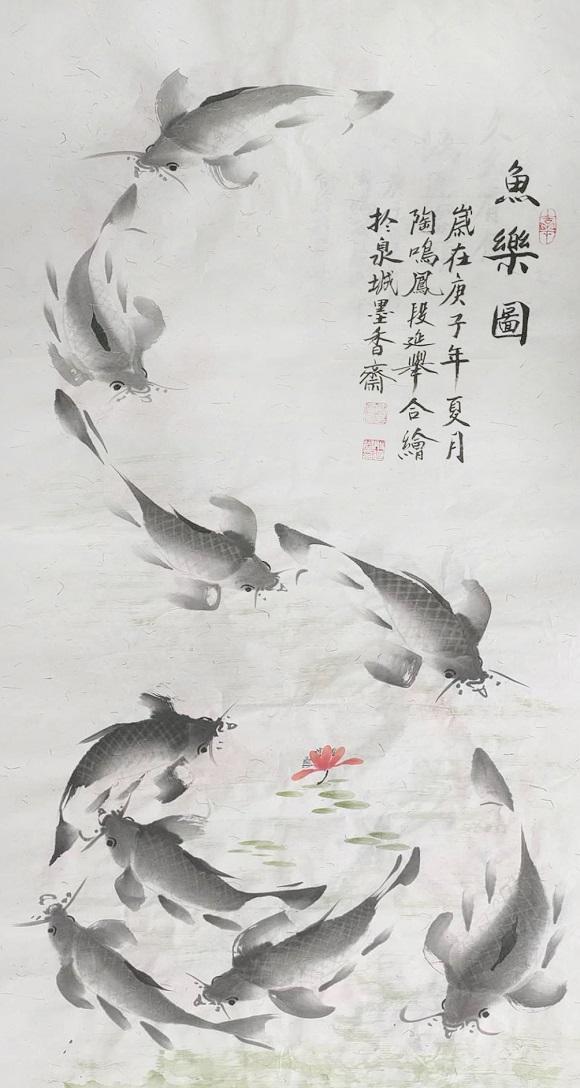 魚樂圖
歲在庚子年夏月
陶鳴鳳段延舉合繪
於泉城墨香齋